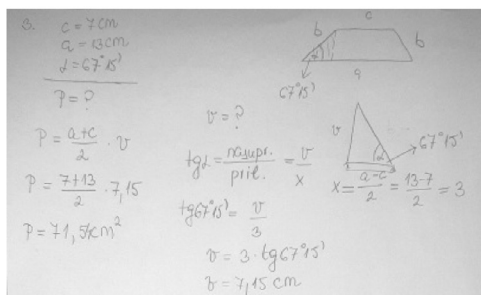 3. c = 7cm
a = 13cm
α = 67°15'
P = ?
P = a+c/2 · v
P = 7+13/2 · 7,15
P = 71,5 cm²
c
b
b
α
a
67°15'
v = ?
tgα = nasupr./pril. = v/x
tg67°15' = v/3
v = 3 · tg67°15'
v = 7,15 cm
v
α
67°15'
x = a-c/2 = 13-7/2 = 3